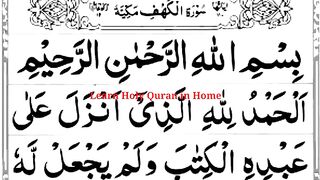 سُوْرَةُ الْكَهْفِ مَكِّيَّةٌ
بِسْمِ اللّٰهِ الرَّحْمٰنِ الرَّحِيْمِ
اَلْحَمْدُ لِلّٰهِ الَّذِیْۤ اَنْزَلَ عَلٰی
Learn Holy Quran in Home
عَبْدِهِ الْكِتٰبَ وَلَمْ يَجْعَلْ لَّهٗ